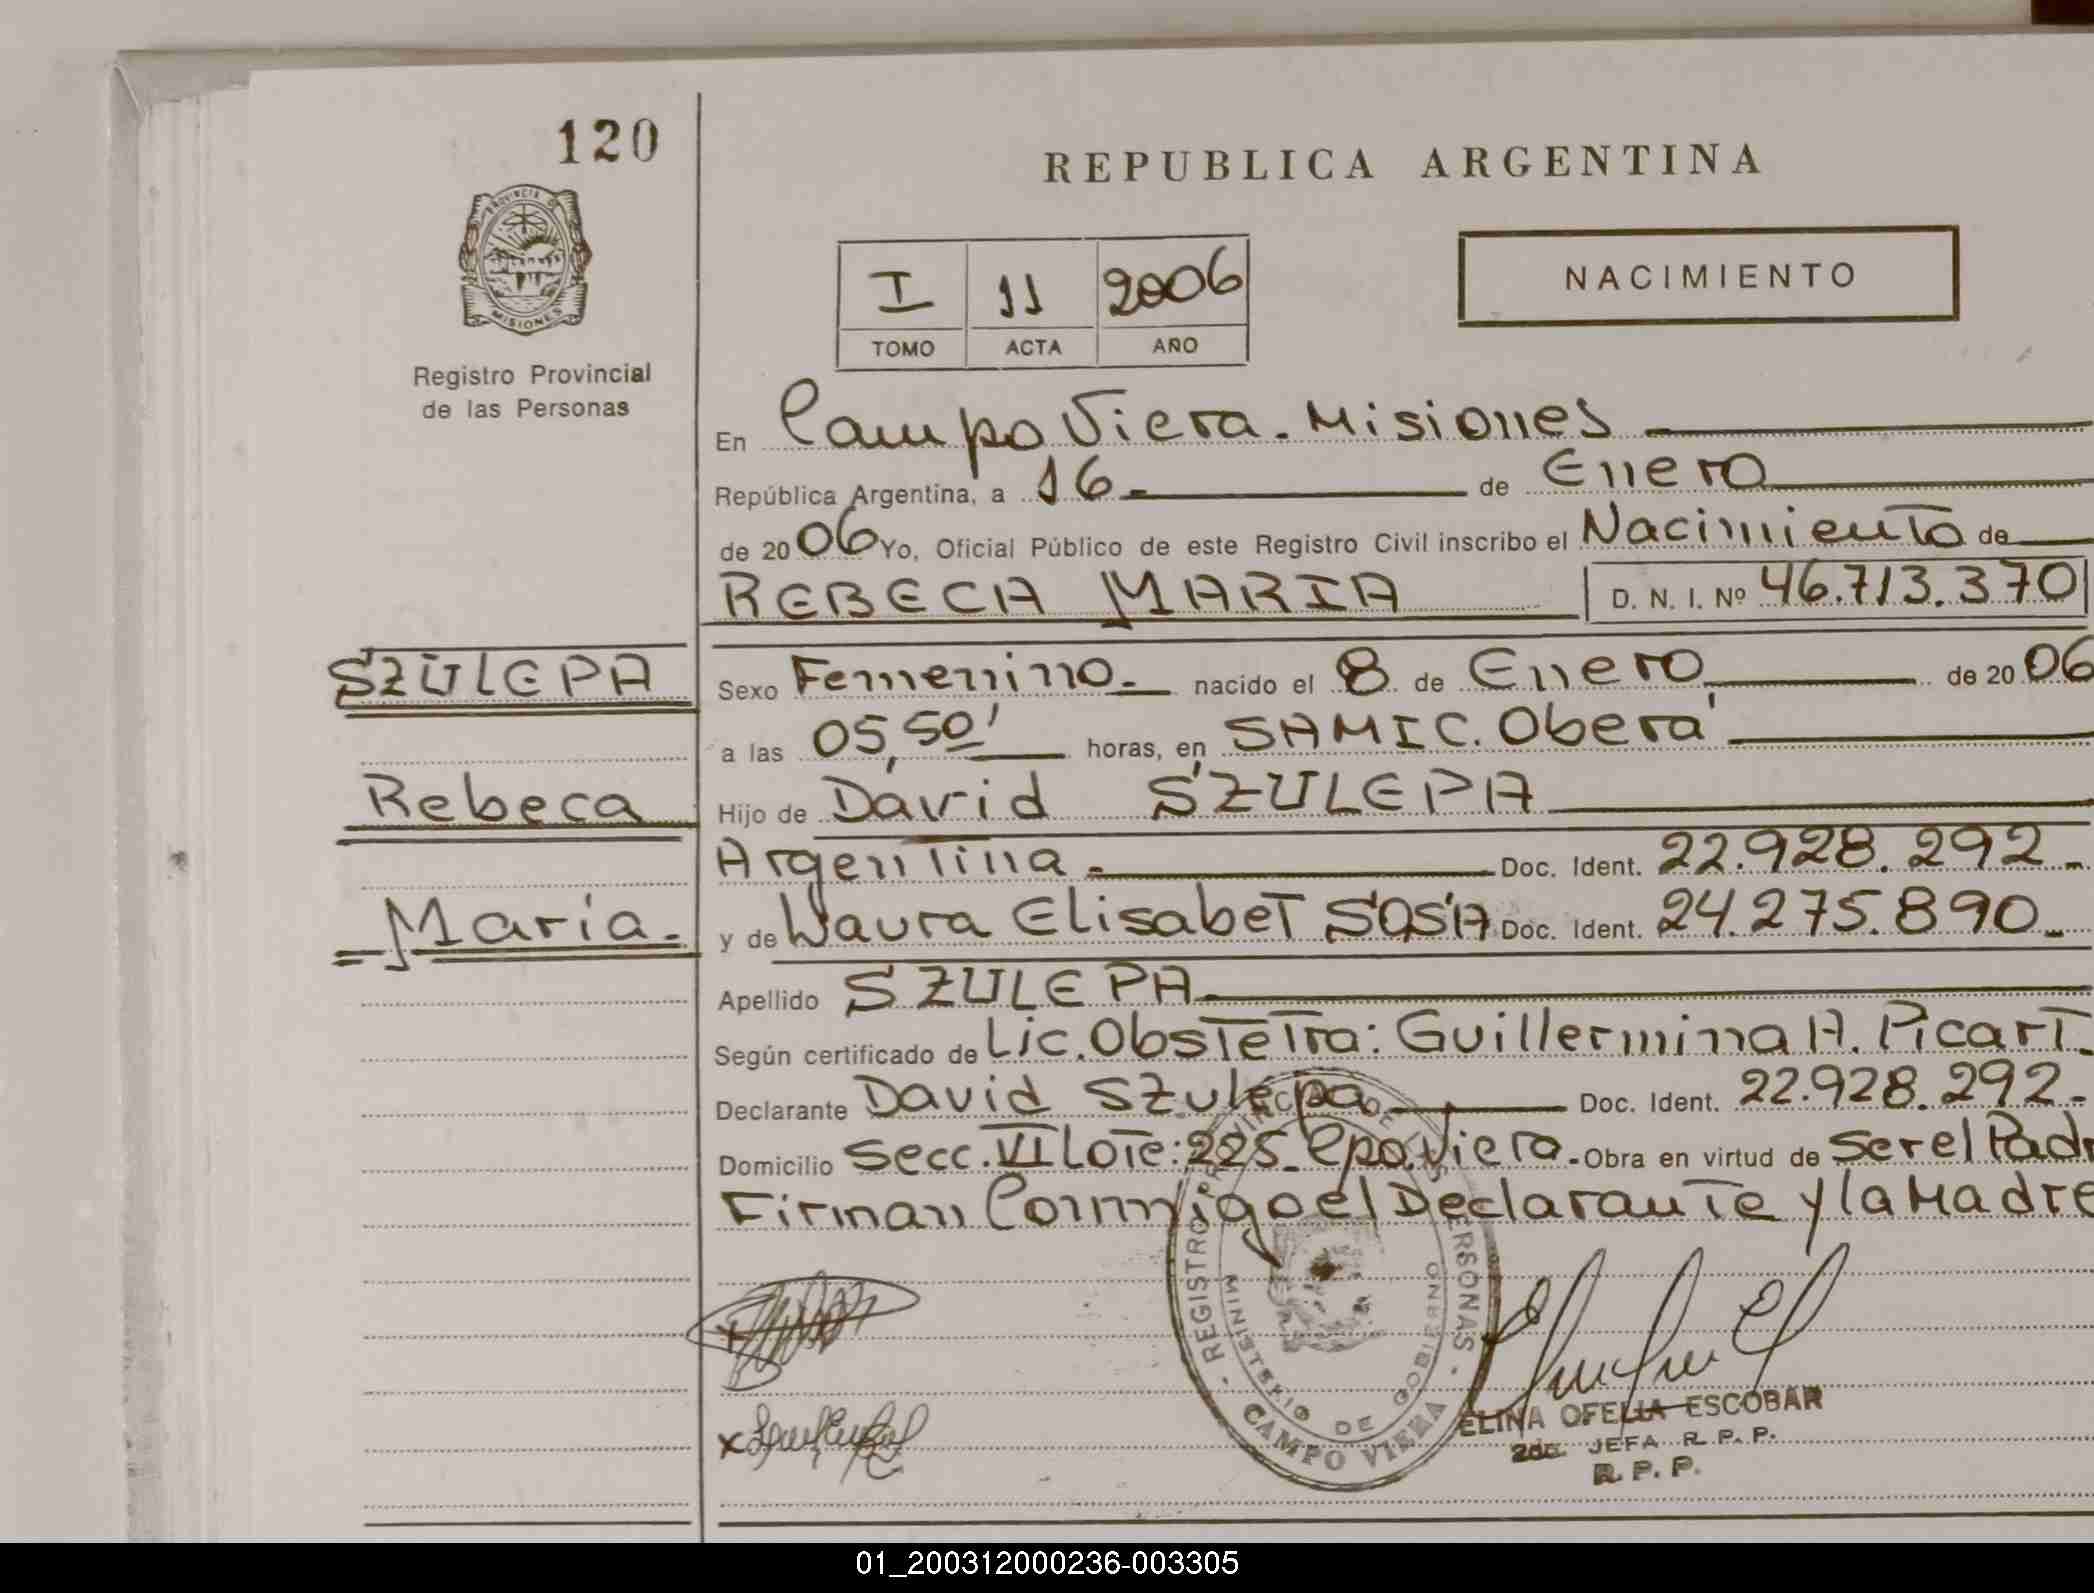 120
PROVINCIA DE
MISIONES
Registro Provincial
de las Personas
REPUBLICA ARGENTINA
I 11 2006
TOMO ACTA AÑO
NACIMIENTO
En Campo Viera. Misiones
República Argentina, a 16 de Enero
de 2006 Yo, Oficial Público de este Registro Civil inscribo el Nacimiento de
REBECA MARIA D. N. I. Nº 46.713.370
SZULEPA
Rebeca
María.
Sexo Femenino. nacido el 8 de Enero de 2006
a las 05,50' horas, en SAMIC. Oberá
Hijo de David SZULEPA
Argentina. Doc. Ident. 22.928.292.
y de Laura Elisabet SOSA Doc. Ident. 24.275.890.
Apellido SZULEPA
Según certificado de Lic. Obstetra: Guillermina A. Picart.
Declarante David Szulepa. Doc. Ident. 22.928.292.
Domicilio Secc. VI Lote: 225. Cpo. Viera. Obra en virtud de Ser el Padr
Firman Conmigo el Declarante y la Madre
- REGISTRO PROVINCIAL DE LAS PERSONAS -
MINISTERIO DE GOBIERNO
CAMPO VIERA
ELINA OFELIA ESCOBAR
2da. JEFA R. P. P.
R. P. P.
01_200312000236-003305